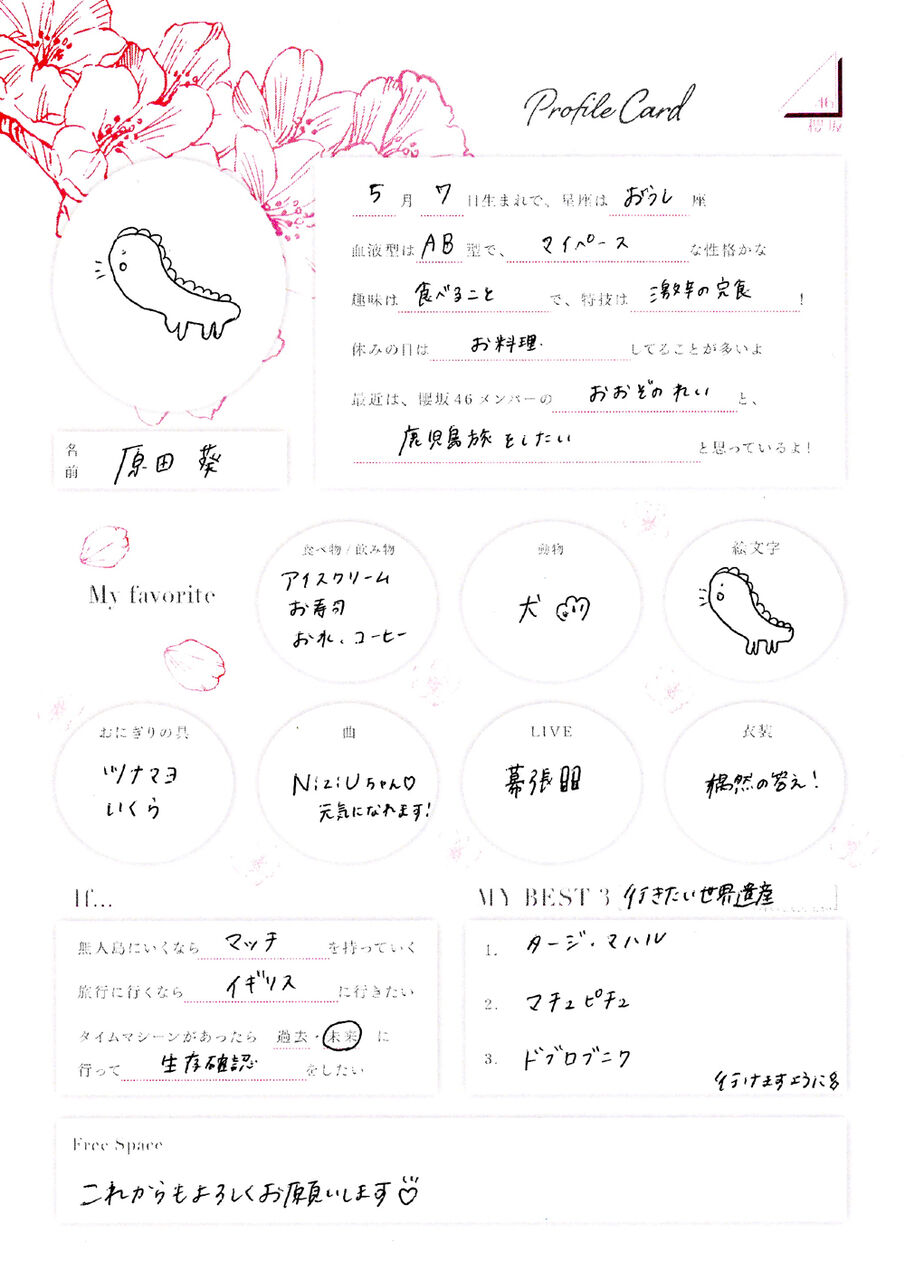 Profile Card
46
櫻坂
5月7日生まれで、星座はおうし座
血液型はAB型で、マイペースな性格かな
趣味は食べることで、特技は激辛の完食!
休みの日はお料理.してることが多いよ
最近は、櫻坂46メンバーのおおぞのれいと、
鹿児島旅をしたいと思っているよ!
名前 原田葵
My favorite
食べ物/飲み物
アイスクリーム
お寿司
お水、コーヒー
動物
犬
絵文字
おにぎりの具
ツナマヨ
いくら
曲
NiziUちゃん♡
元気になれます!
LIVE
幕張
衣装
偶然の答え!
If...
無人島にいくならマッチを持っていく
旅行に行くならイギリスに行きたい
タイムマシーンがあったら 過去・未来 に
行って生存確認をしたい
MY BEST 3 行きたい世界遺産
1. タージ・マハル
2. マチュピチュ
3. ドブロブニク
行けますように
Free Space
これからもよろしくお願いします♡